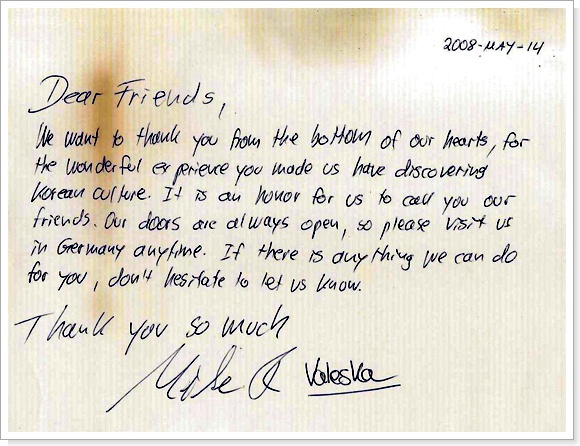 2008-MAY-14
Dear Friends,
We want to thank you from the bottom of our hearts, for
the wonderful experience you made us have discovering
korean culture. It is an honor for us to call you our
friends. Our doors are always open, so please visit us
in Germany anytime. If there is anything we can do
for you, don't hesitate to let us know.
Thank you so much
Mike & Valeska